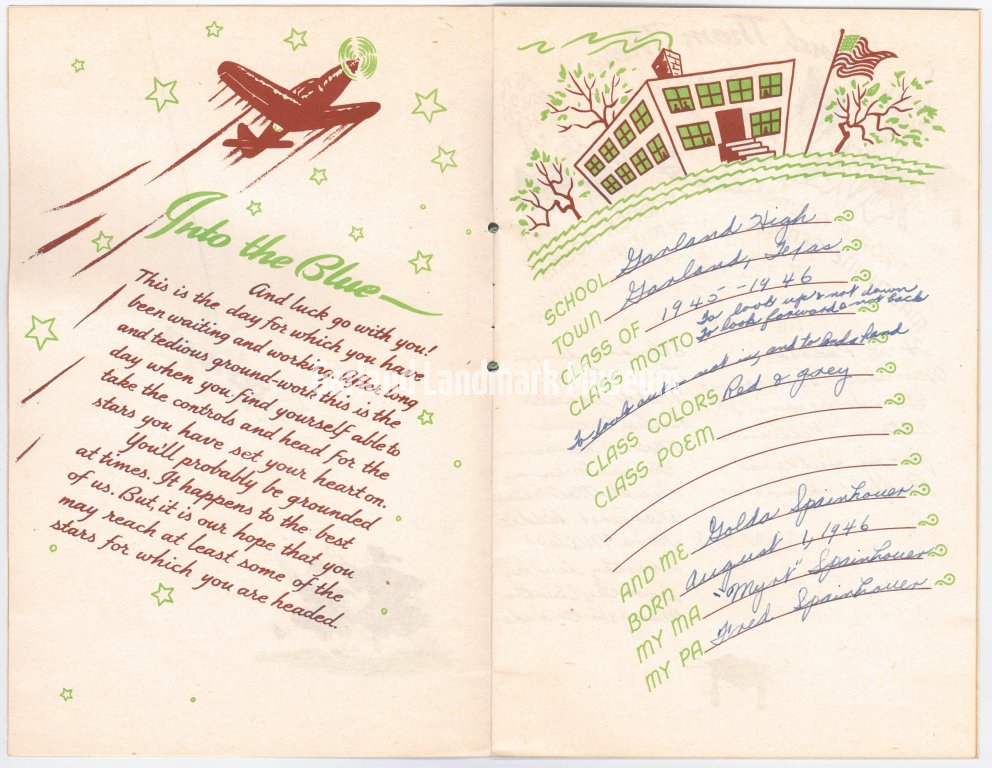 Into the Blue
And luck go with you!
This is the day for which you have
been waiting and working. After long
and tedious ground-work this is the
day when you find yourself able to
take the controls and head for the
stars you have set your heart on.
You'll probably be grounded
at times. It happens to the best
of us. But, it is our hope that you
may reach at least some of the
stars for which you are headed.
Garland Landmark Museum
SCHOOL Garland High
TOWN Garland, Texas
CLASS OF 1945-1946
CLASS MOTTO To look up & not down
To look forward & not back
To look out & not in, and to lend a hand
CLASS COLORS Red & grey
CLASS POEM
AND ME Golda Spainhouer
BORN August 1, 1946
MY MA "Myrt" Spainhouer
MY PA Fred Spainhouer